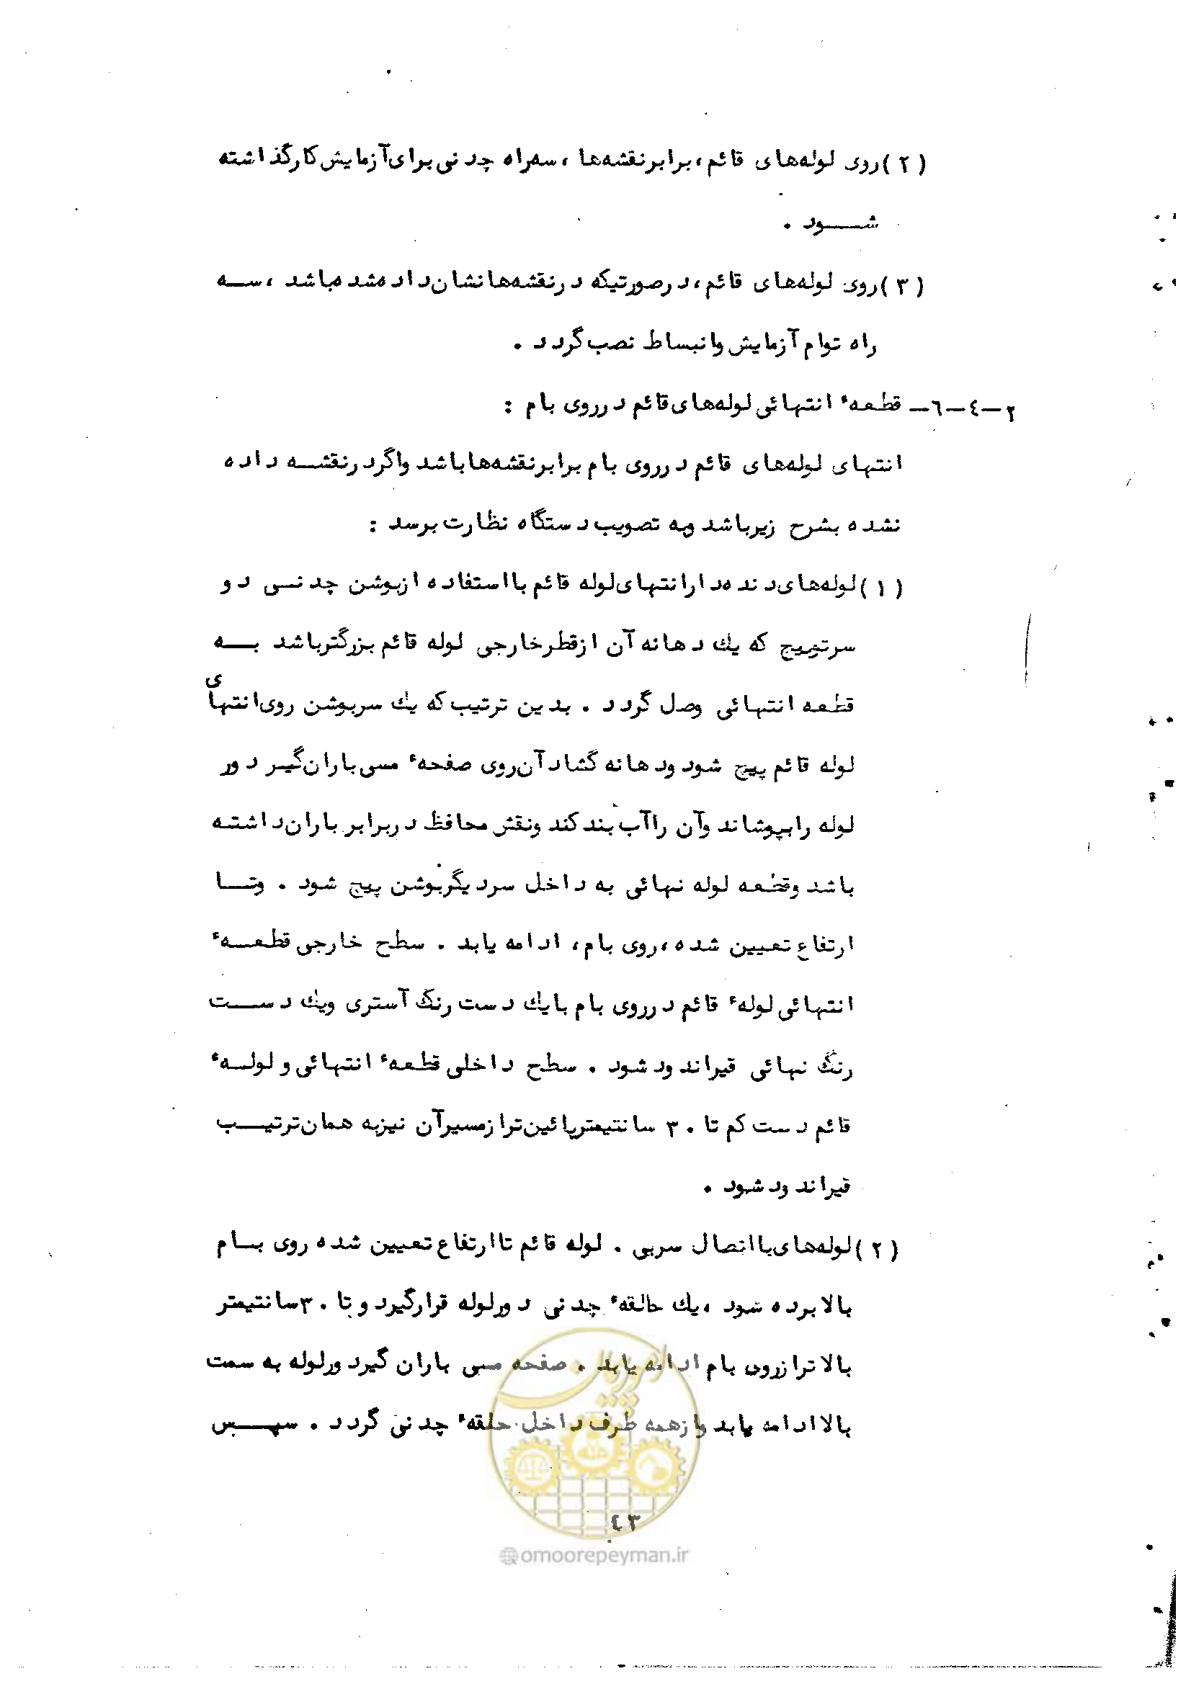 (۲) روی لوله‌های قائم، برابر نقشه‌ها، سه‌راه چدنی برای آزمایش کار گذاشته
شود.
(۳) روی لوله‌های قائم، درصورتیکه درنقشه‌ها نشان داده شده باشد، سه
راه توام آزمایش وانبساط نصب گردد.
۲-٤-٦- قطعهٔ انتهائی لوله‌های قائم درروی بام :
انتهای لوله‌های قائم درروی بام برابر نقشه‌ها باشد واگر درنقشه داده
نشده بشرح زیر باشد وبه تصویب دستگاه نظارت برسد :
(۱) لوله‌های دنده‌دار انتهای لوله قائم با استفاده از بوشن چدنی دو
سر توپیچ که یك دهانه آن از قطر خارجی لوله قائم بزرگتر باشد به
قطعه انتهائی وصل گردد. بدین ترتیب که یك سر بوشن روی انتهای
لوله قائم پیچ شود ودهانه گشاد آن روی صفحهٔ مسی باران‌گیر دور
لوله را بپوشاند وآن را آب بند کند ونقش محافظ دربرابر باران داشته
باشد وقطعه لوله نهائی به داخل سر دیگر بوشن پیچ شود. وتا
ارتفاع تعیین شده، روی بام، ادامه یابد. سطح خارجی قطعهٔ
انتهائی لولهٔ قائم درروی بام با یك دست رنگ آستری ویك دست
رنگ نهائی قیراندود شود. سطح داخلی قطعهٔ انتهائی و لولهٔ
قائم دست کم تا ۳۰ سانتیمتر پائین‌تر از مسیر آن نیز به همان ترتیب
قیراندود شود.
(۲) لوله‌های با اتصال سربی. لوله قائم تا ارتفاع تعیین شده روی بام
بالا برده شود، یك حالقهٔ چدنی دور لوله قرار گیرد و تا ۳۰ سانتیمتر
بالاتر از روی بام ادامه یابد. صفحه مسی باران گیر دور لوله به سمت
بالا ادامه یابد واز همه طرف داخل حلقهٔ چدنی گردد. سپس
امور پیمان
٤۳
@omoorepeyman.ir